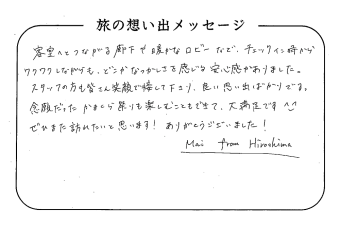 旅の想い出メッセージ
客室へとつながる廊下や暖かなロビーなど、チェックイン時から
ワクワクしながらも、どこかなつかしさを感じる安心感がありました。
スタッフの方も皆さん笑顔で接して下さり、良い思い出ばかりです。
念願だったかまくら祭りも楽しむこともできて、大満足です^^
ぜひまた訪れたいと思います! ありがとうございました!
Mai from Hiroshima